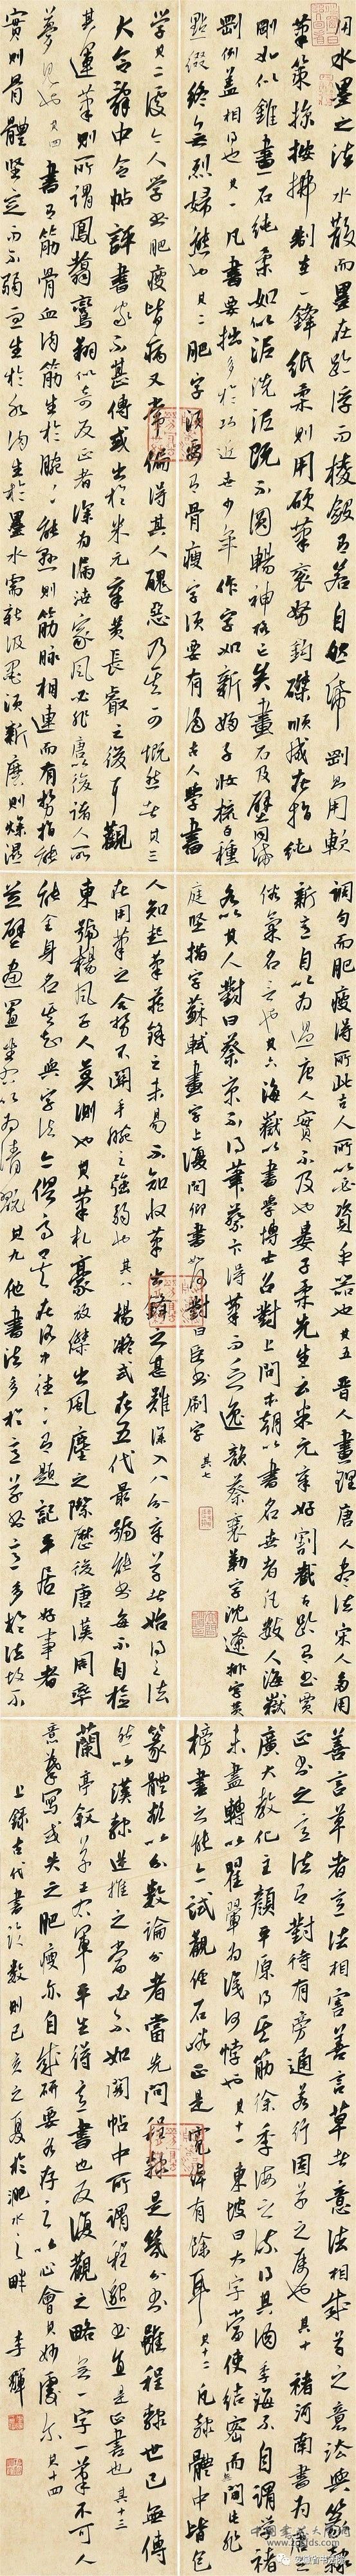 用水墨之法水散而墨在跡浮而棱斂有若自然紙剛用軟
筆策掠按拂制在一鋒紙柔則用硬筆衮努鉤磔順成在指純
剛如以錐畫石純柔如以泥洗泥既不圓暢神格亡矣畫石及壁同紙
剛例蓋相得也其一凡書要拙多於巧近世少年作字如新婦子妝梳百種
點綴終無烈婦態也其二肥字須要有骨瘦字須要有肉古人學書
學其二處今人學書肥瘦皆病又常偏得其人醜惡乃其可慨然者其三
大令辭中令帖評書家不甚傳或出於米元章黃長睿之後耳觀
其運筆則所謂鳳翥鸞翔似奇反正者深為漏洩家風必非唐以後諸人所
夢見也其四書有筋骨血肉筋生於腕腕能懸則筋脉相連而有勢指能
實則骨體堅定而不弱血生於水肉生於墨水需新汲墨須新磨則燥濕
調勻而肥瘦得所此古人所以必資乎器也其五晉人書理唐人書法宋人多用
新意自以為過唐人實不及也婁子柔先生云米元章好割截古跡有書賈
俗氣名言也其六海嶽以書學博士召對上問本朝以書名世者凡數人海嶽
各以其人對曰蔡京不得筆蔡卞得筆而乏逸韻蔡襄勒字沈遼排字黃
庭堅描字蘇軾畫字上復問卿書如何對曰臣書刷字其七
人知起筆藏鋒之未易不知收筆出鋒之甚難深入八分章草者始得之法
在用筆之合勢不關手腕之強弱也其八楊凝式在五代最號能書每不自檢
束號楊風子人莫測也其筆札豪放傑出風塵之際歷後唐漢周卒
能全身名其知與字法亦俱高矣在洛中往往有題記平居好事者
并壁畫置坐右以為清翫其九他書法多於意草書意多於法故不
善言草者意法相害善言草者意法相成草之意法與篆隸
正書之意法有對待有旁通若行固草之屬也其十褚河南書為唐之
廣大教化主顏平原得其筋徐季海之流得其肉季海不自謂學褚
未盡轉以翬翟為淺何悖也其十一東坡曰大字當使結密而無間此非
榜書之能今試觀任石峪正是寬綽有餘耳其十二凡隸體中皆包
篆體欲以分數論分者當先問程隸是幾分書雖程隸世已無傳
然以漢隸逆推之當必不如閣帖中所謂程邈書直是正書也其十三
蘭亭敘草王右軍平生得意書也反復觀之略無一字一筆不可人
意摹寫或失之肥瘦亦自成研要各存之以心會其妙處爾其十四
上錄古代書論數則己亥之夏於淝水之畔李輝